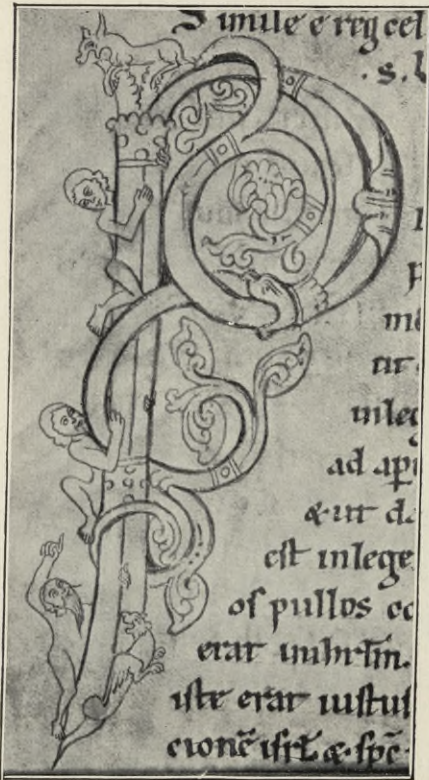 Simile e reg cel
.s. l
me
ut
inleg
ad apt
& ut da
est inlege
os pullos co
erat inihrlm.
iste erat iustus
cionē isrl̄ & spc̄